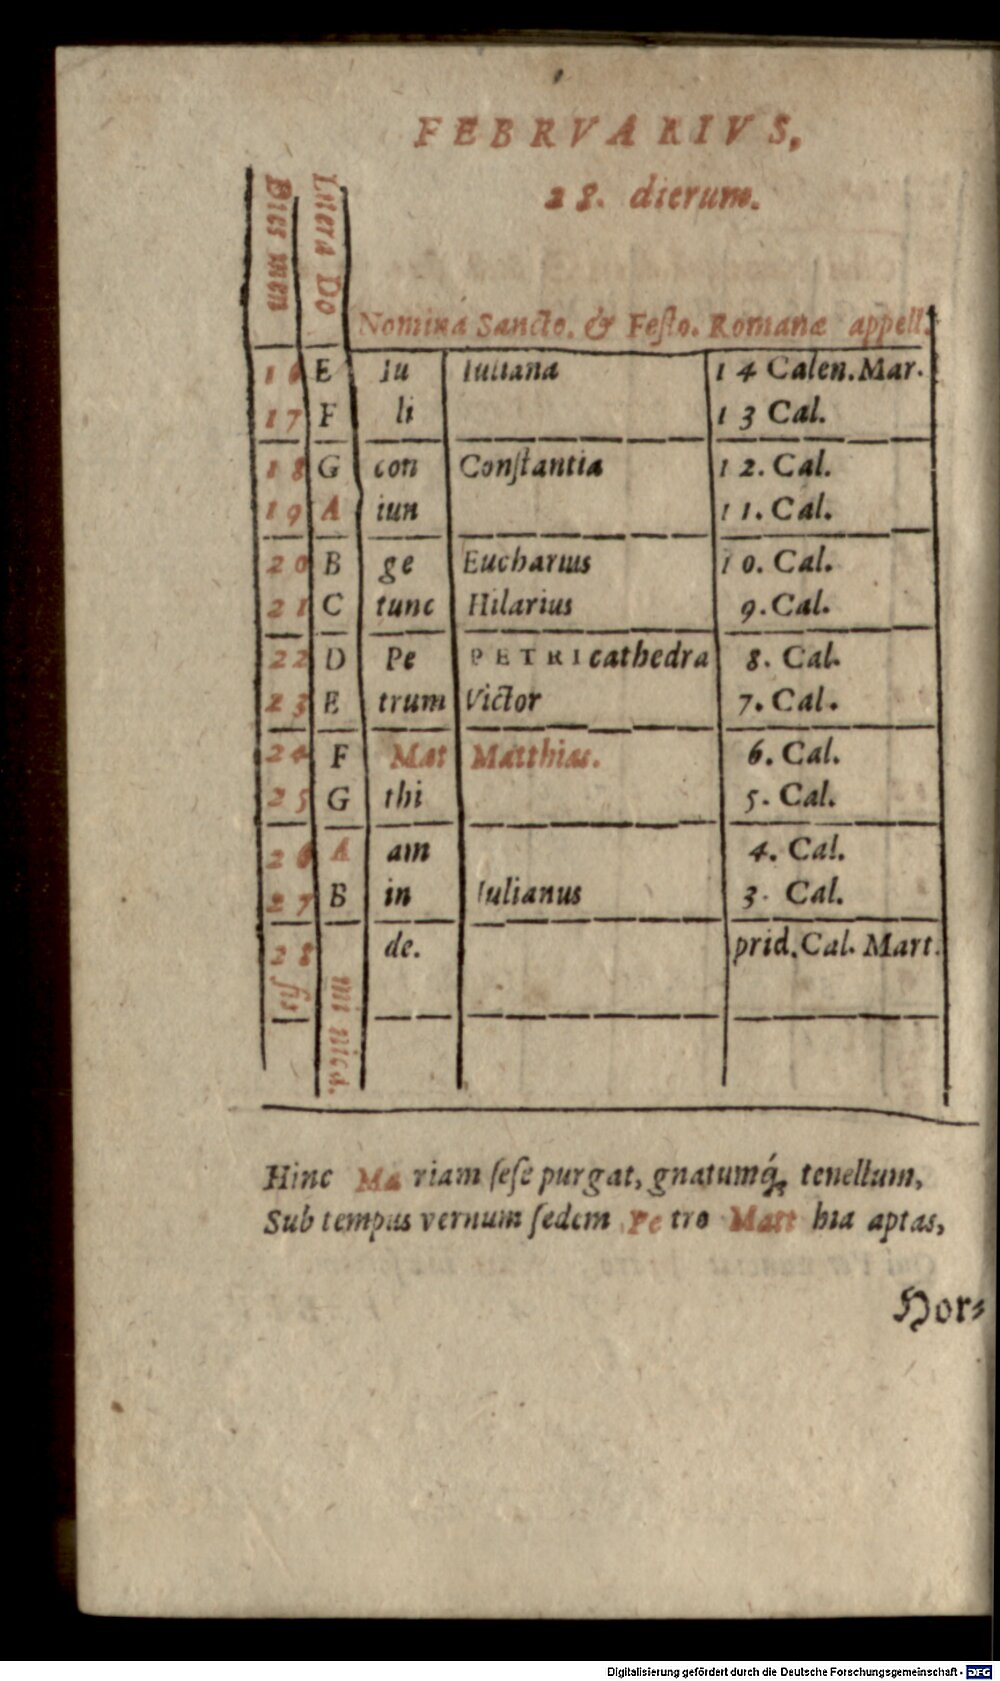 FEBRVARIVS,
28. dierum.
Dies men
Litera Do
Nomina Sancto. & Festo. Romanæ appell.
16 E Iu Iuliana 14 Calen. Mar.
17 F li 13 Cal.
18 G con Conſtantia 12. Cal.
19 A iun 11. Cal.
20 B ge Eucharius 10. Cal.
21 C tunc Hilarius 9. Cal.
22 D Pe PETRI cathedra 8. Cal.
23 E trum Victor 7. Cal.
24 F Mat Matthias. 6. Cal.
25 G thi 5. Cal.
26 A am 4. Cal.
27 B in Iulianus 3. Cal.
28 de. prid. Cal. Mart.
ſis
mi nica.
Hinc Ma riam ſeſe purgat, gnatumq́; tenellum,
Sub tempus vernum ſedem Pe tro Matt hia aptas,
Hor⸗
Digitalisierung gefördert durch die Deutsche Forschungsgemeinschaft - DFG